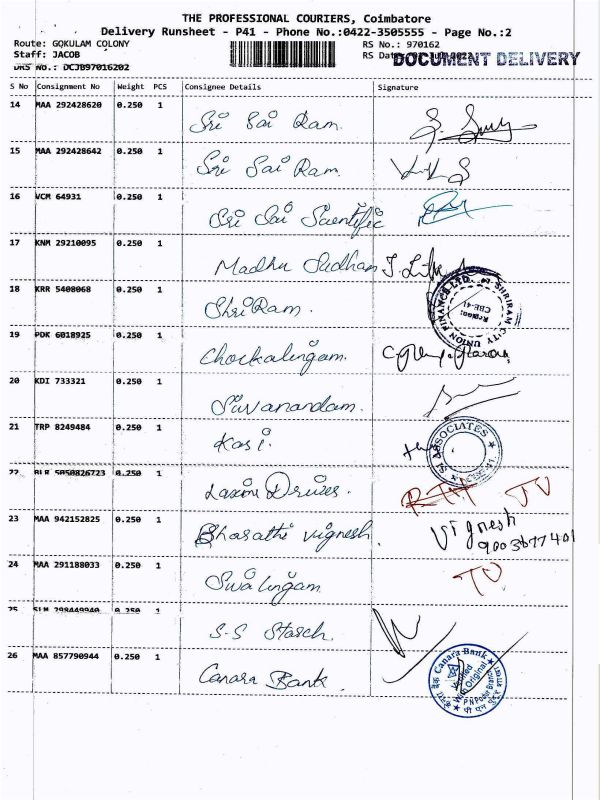 THE PROFESSIONAL COURIERS, Coimbatore
Delivery Runsheet - P41 - Phone No.:0422-3505555 - Page No.:2
Route: GOKULAM COLONY RS No.: 970162
Staff: JACOB RS Date
DOCUMENT DELIVERY
DRS No.: DCJB97016202
S No Consignment No Weight PCS Consignee Details Signature
14 MAA 292428620 0.250 1 Sri Sai Ram.
15 MAA 292428642 0.250 1 Sri Sai Ram.
16 VCM 64931 0.250 1 Sri Sai Scientific
17 KNM 29210095 0.250 1 Madhu Sudhan
18 KRR 5408068 0.250 1 Shri Ram.
SHRIRAM CITY UNION FINANCE LTD.
Region:
CBE-41
19 PDK 6018925 0.250 1 Chockalingam.
20 KDI 733321 0.250 1 Sivanandam.
21 TRP 8249484 0.250 1 Kasi.
SJ ASSOCIATES
22 BLR 5050826723 0.250 1 Laxmi Drives.
23 MAA 942152825 0.250 1 Bharathi Vignesh. Vignesh
9003677401
24 MAA 291188033 0.250 1 Sivalingam
25 SLM 298449940 0.250 1 S-S Starch.
26 MAA 857790944 0.250 1 Canara Bank.
Canara Bank
Verified
With Original